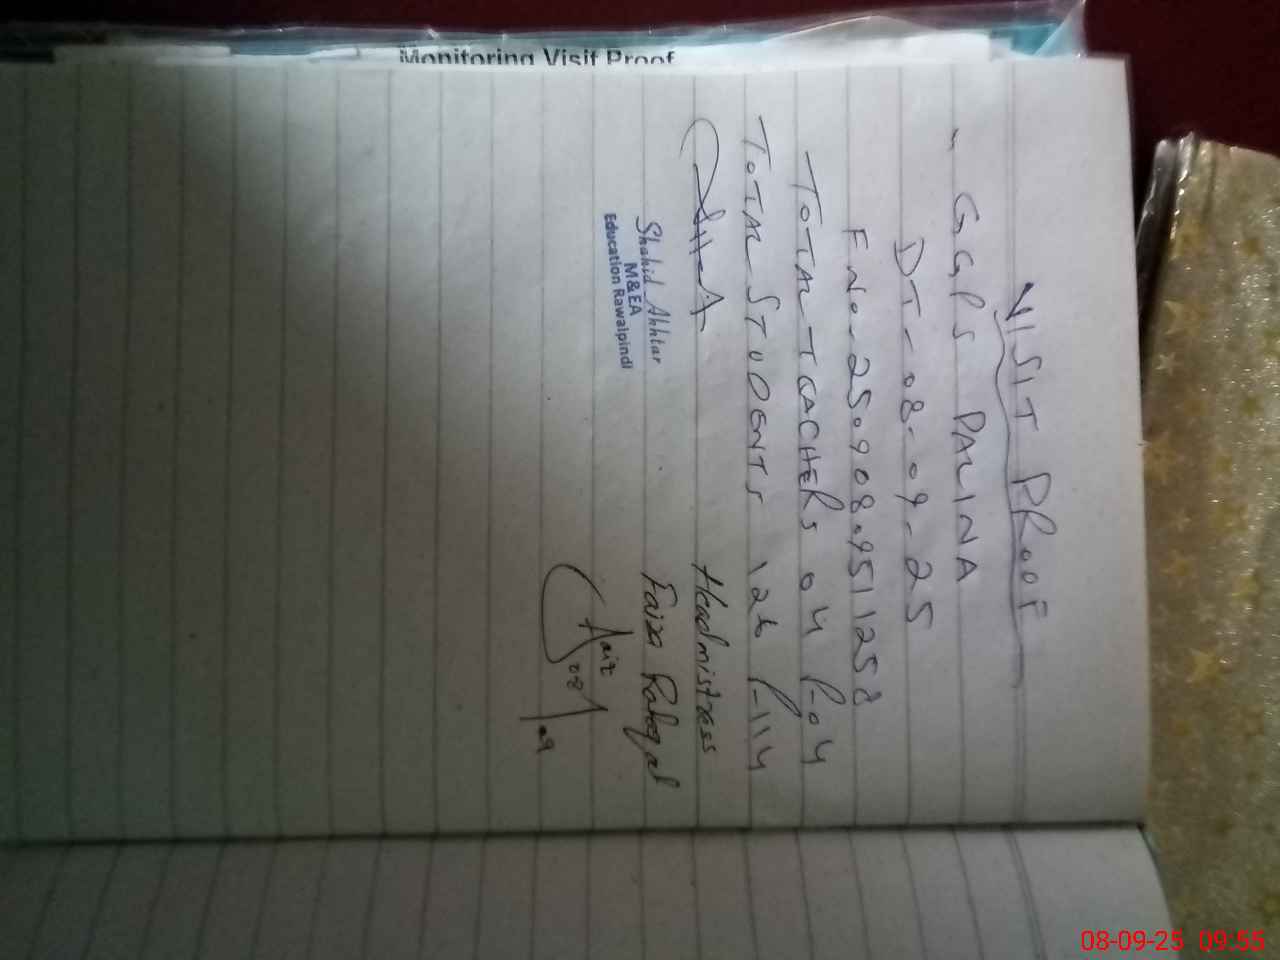 Monitoring Visit Proof
VISIT PROOF
GGPS DALINA
DT- 08-09-25
F No- 25090809511258
TOTAL TEACHERS 04 P-04
TOTAL STUDENTS 126 P-114
Headmistress
Shahid Akhtar
M&EA
Education Rawalpindi
Faiza
Faiz
08/09
08-09-25 09:55